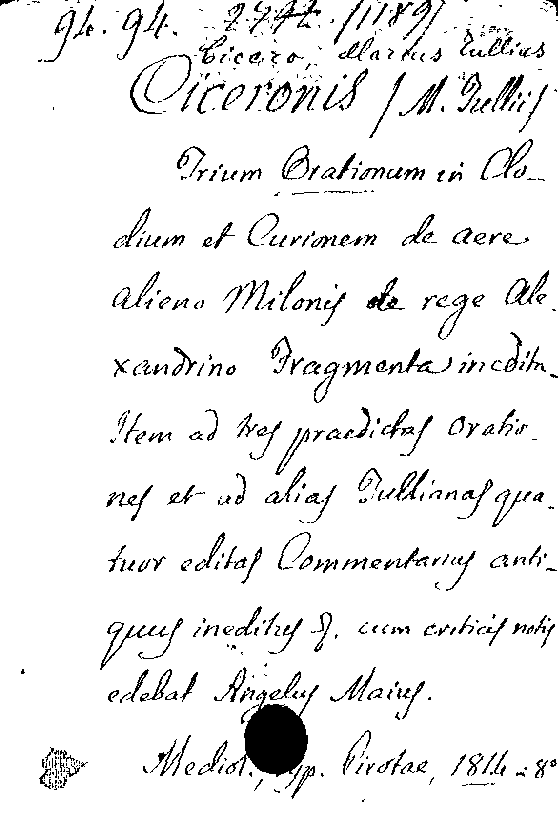 94. 94. /1189/
Cicero, Marcus Tullius
Ciceronis /M. Tullii/
Trium Orationum in Clo-
dium et Curionem de aere
alieno Milonis de rege Ale-
xandrino Fragmenta inedita
Item ad tres praedictas oratio-
nes et ad alias Tullianas qua-
tuor editas Commentarius anti-
quus ineditus cum criticis notis
edebat Angelus Maius.
Mediol., typ. Pirotae, 1814. 8°